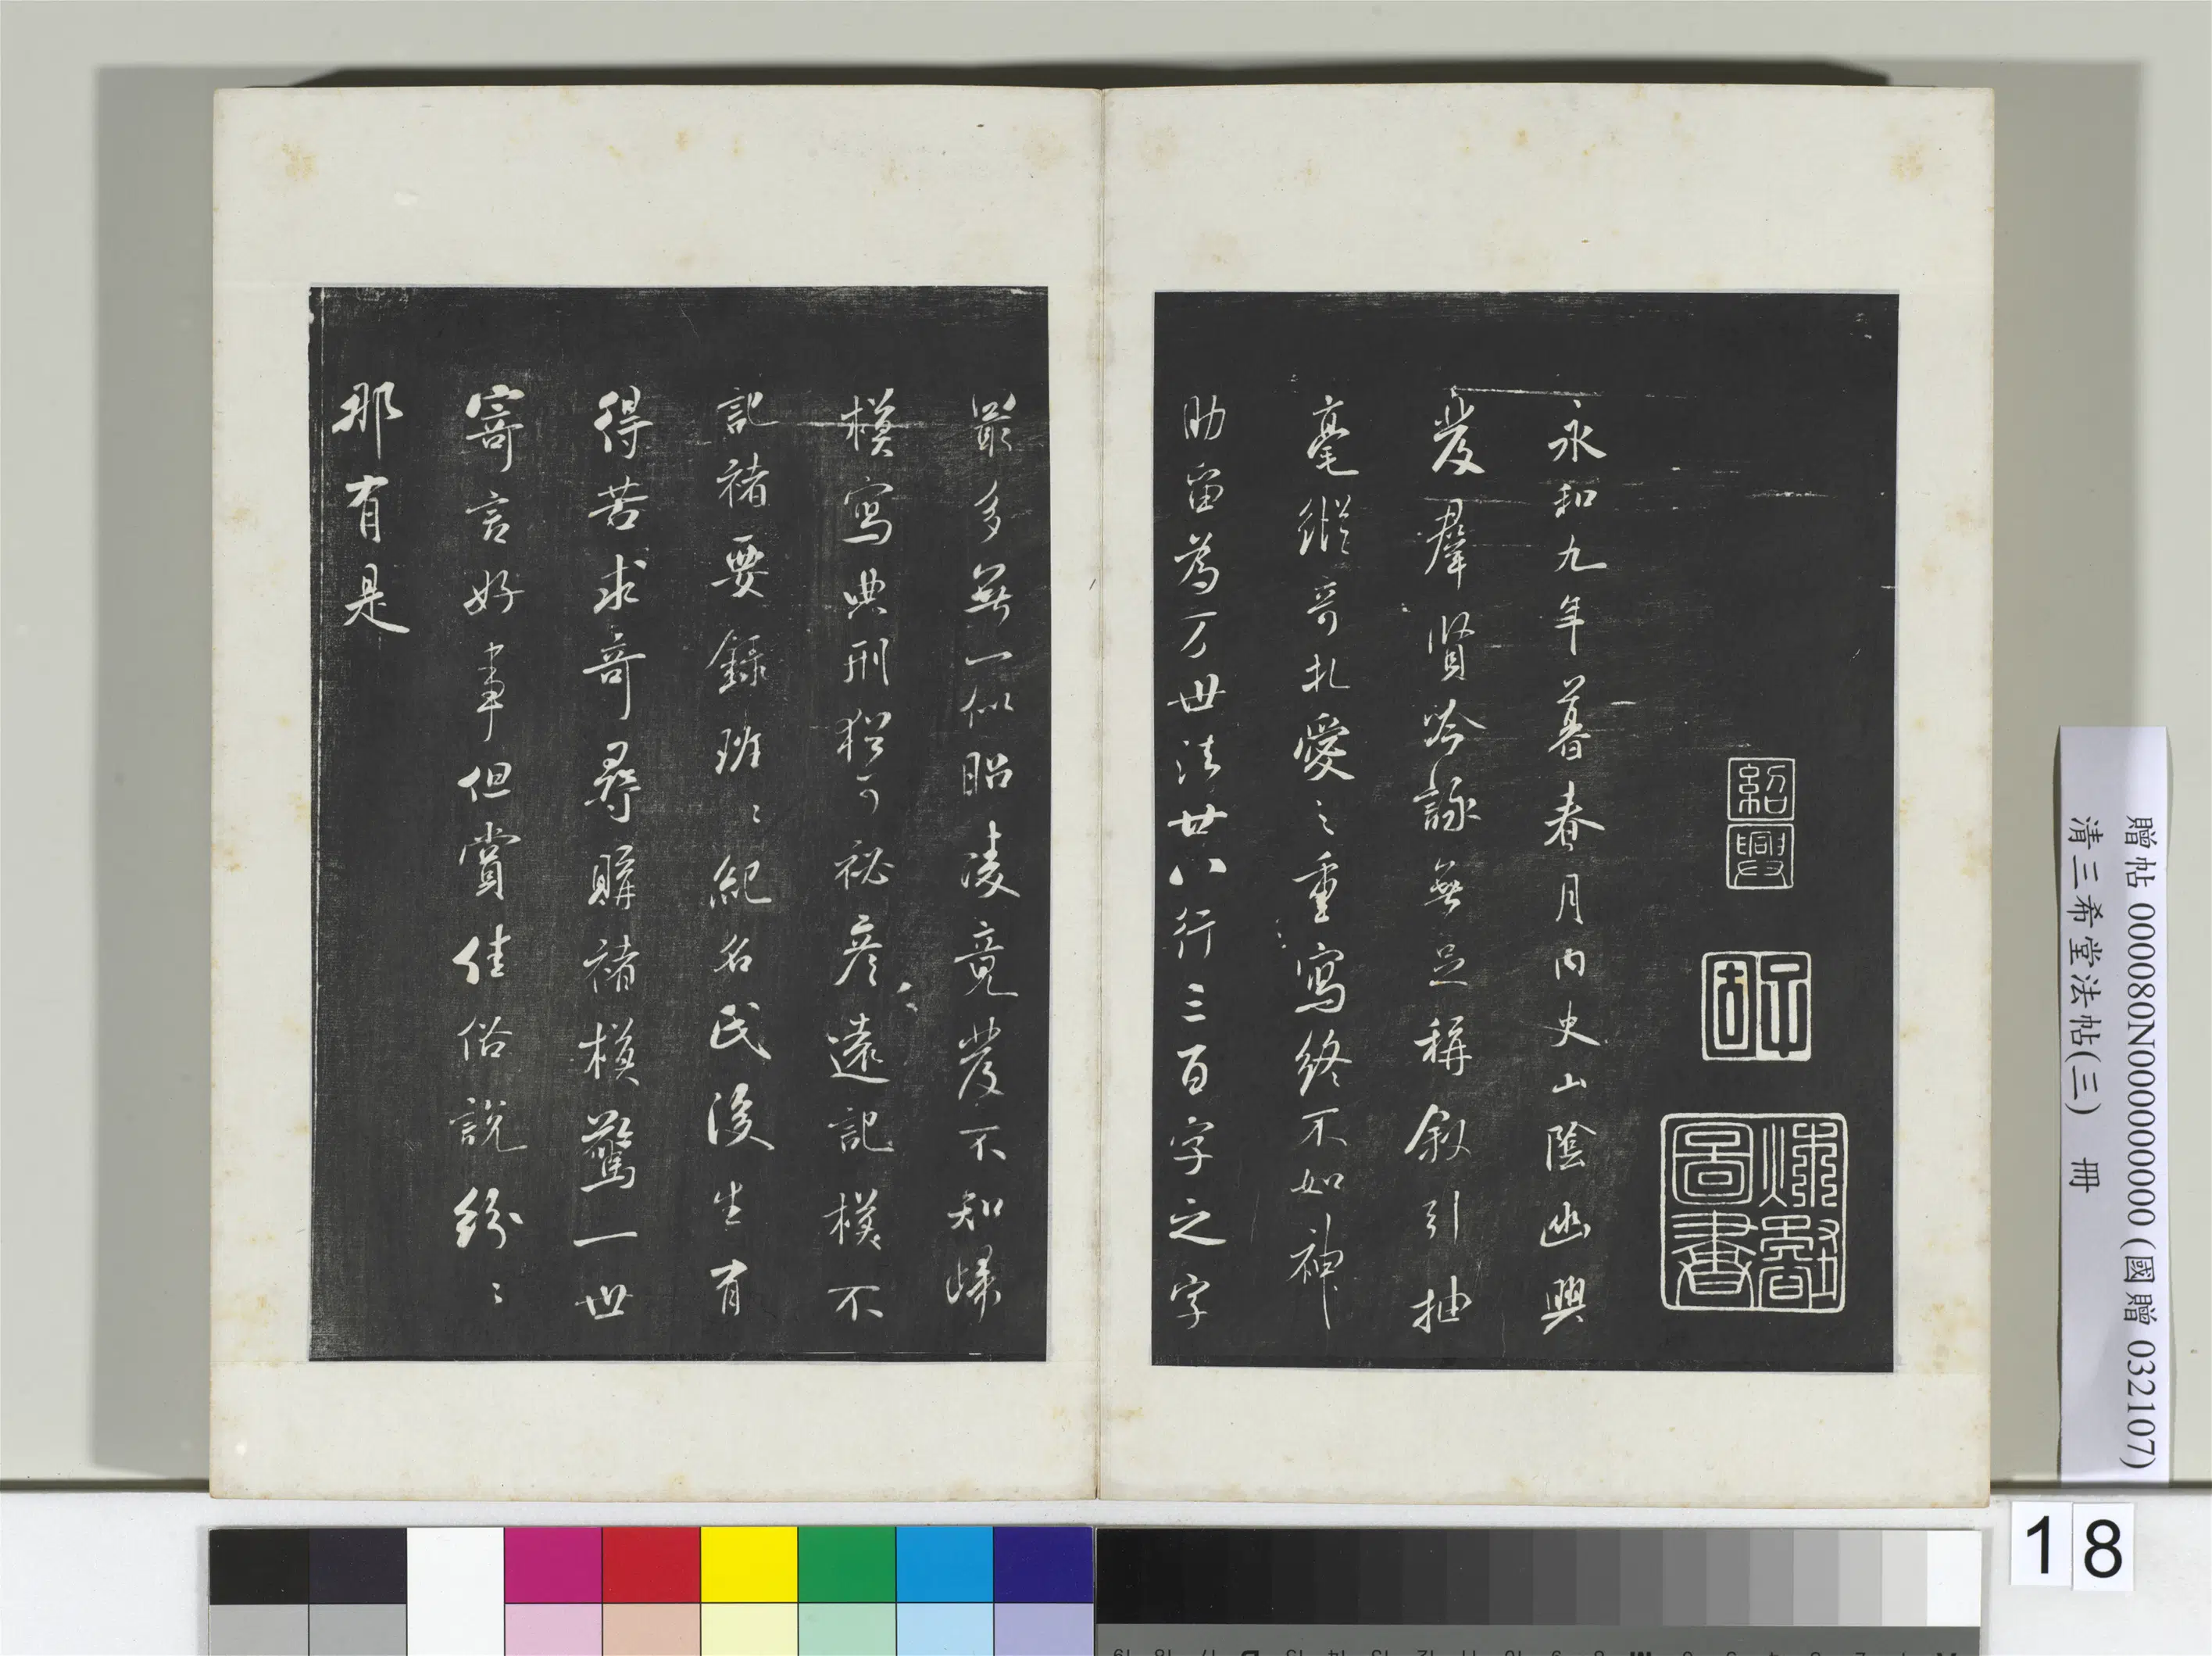 紹興
永和九年暮春月内史山陰幽興
發羣賢吟詠無足稱叙引抽
毫縱奇札愛之重寫終不如神
助留為万世法廿八行三百字之字
㝡多無一似昭凌竟發不知歸
模寫典刑猶可秘彦遠記模不
記褚要錄班〻紀名氏後生有
得苦求奇尋購褚模驚一世
寄言好事但賞佳俗說紛〻
那有是
贈帖 000080N000000000 (國贈 032107)
清三希堂法帖(三) 冊
18